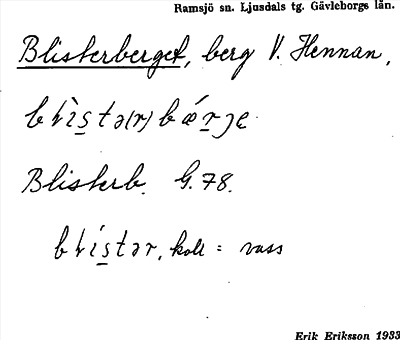 Ramsjö sn. Ljusdals tg. Gävleborgs län.
Blisterberget, berg V. Hennan,
blìstə(r)bǽrjɛ
Blisterb. G.78.
blístər, koll = vass
Erik Eriksson 1933